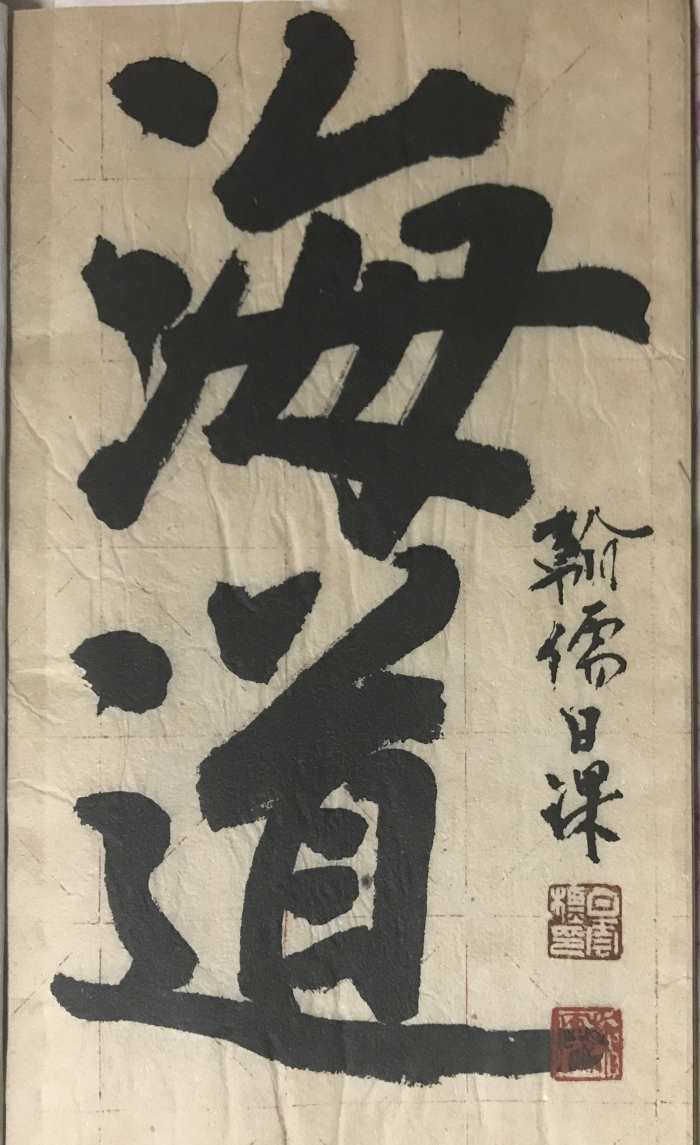 海道
翰儒日课